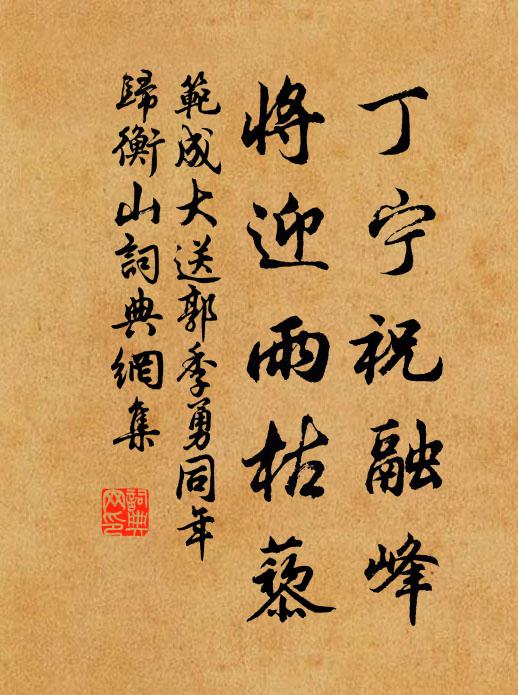 丁宁祝融峰
将迎雨枯藜
範成大送郭季勇同年
歸衡山詞典網集
詞典网印